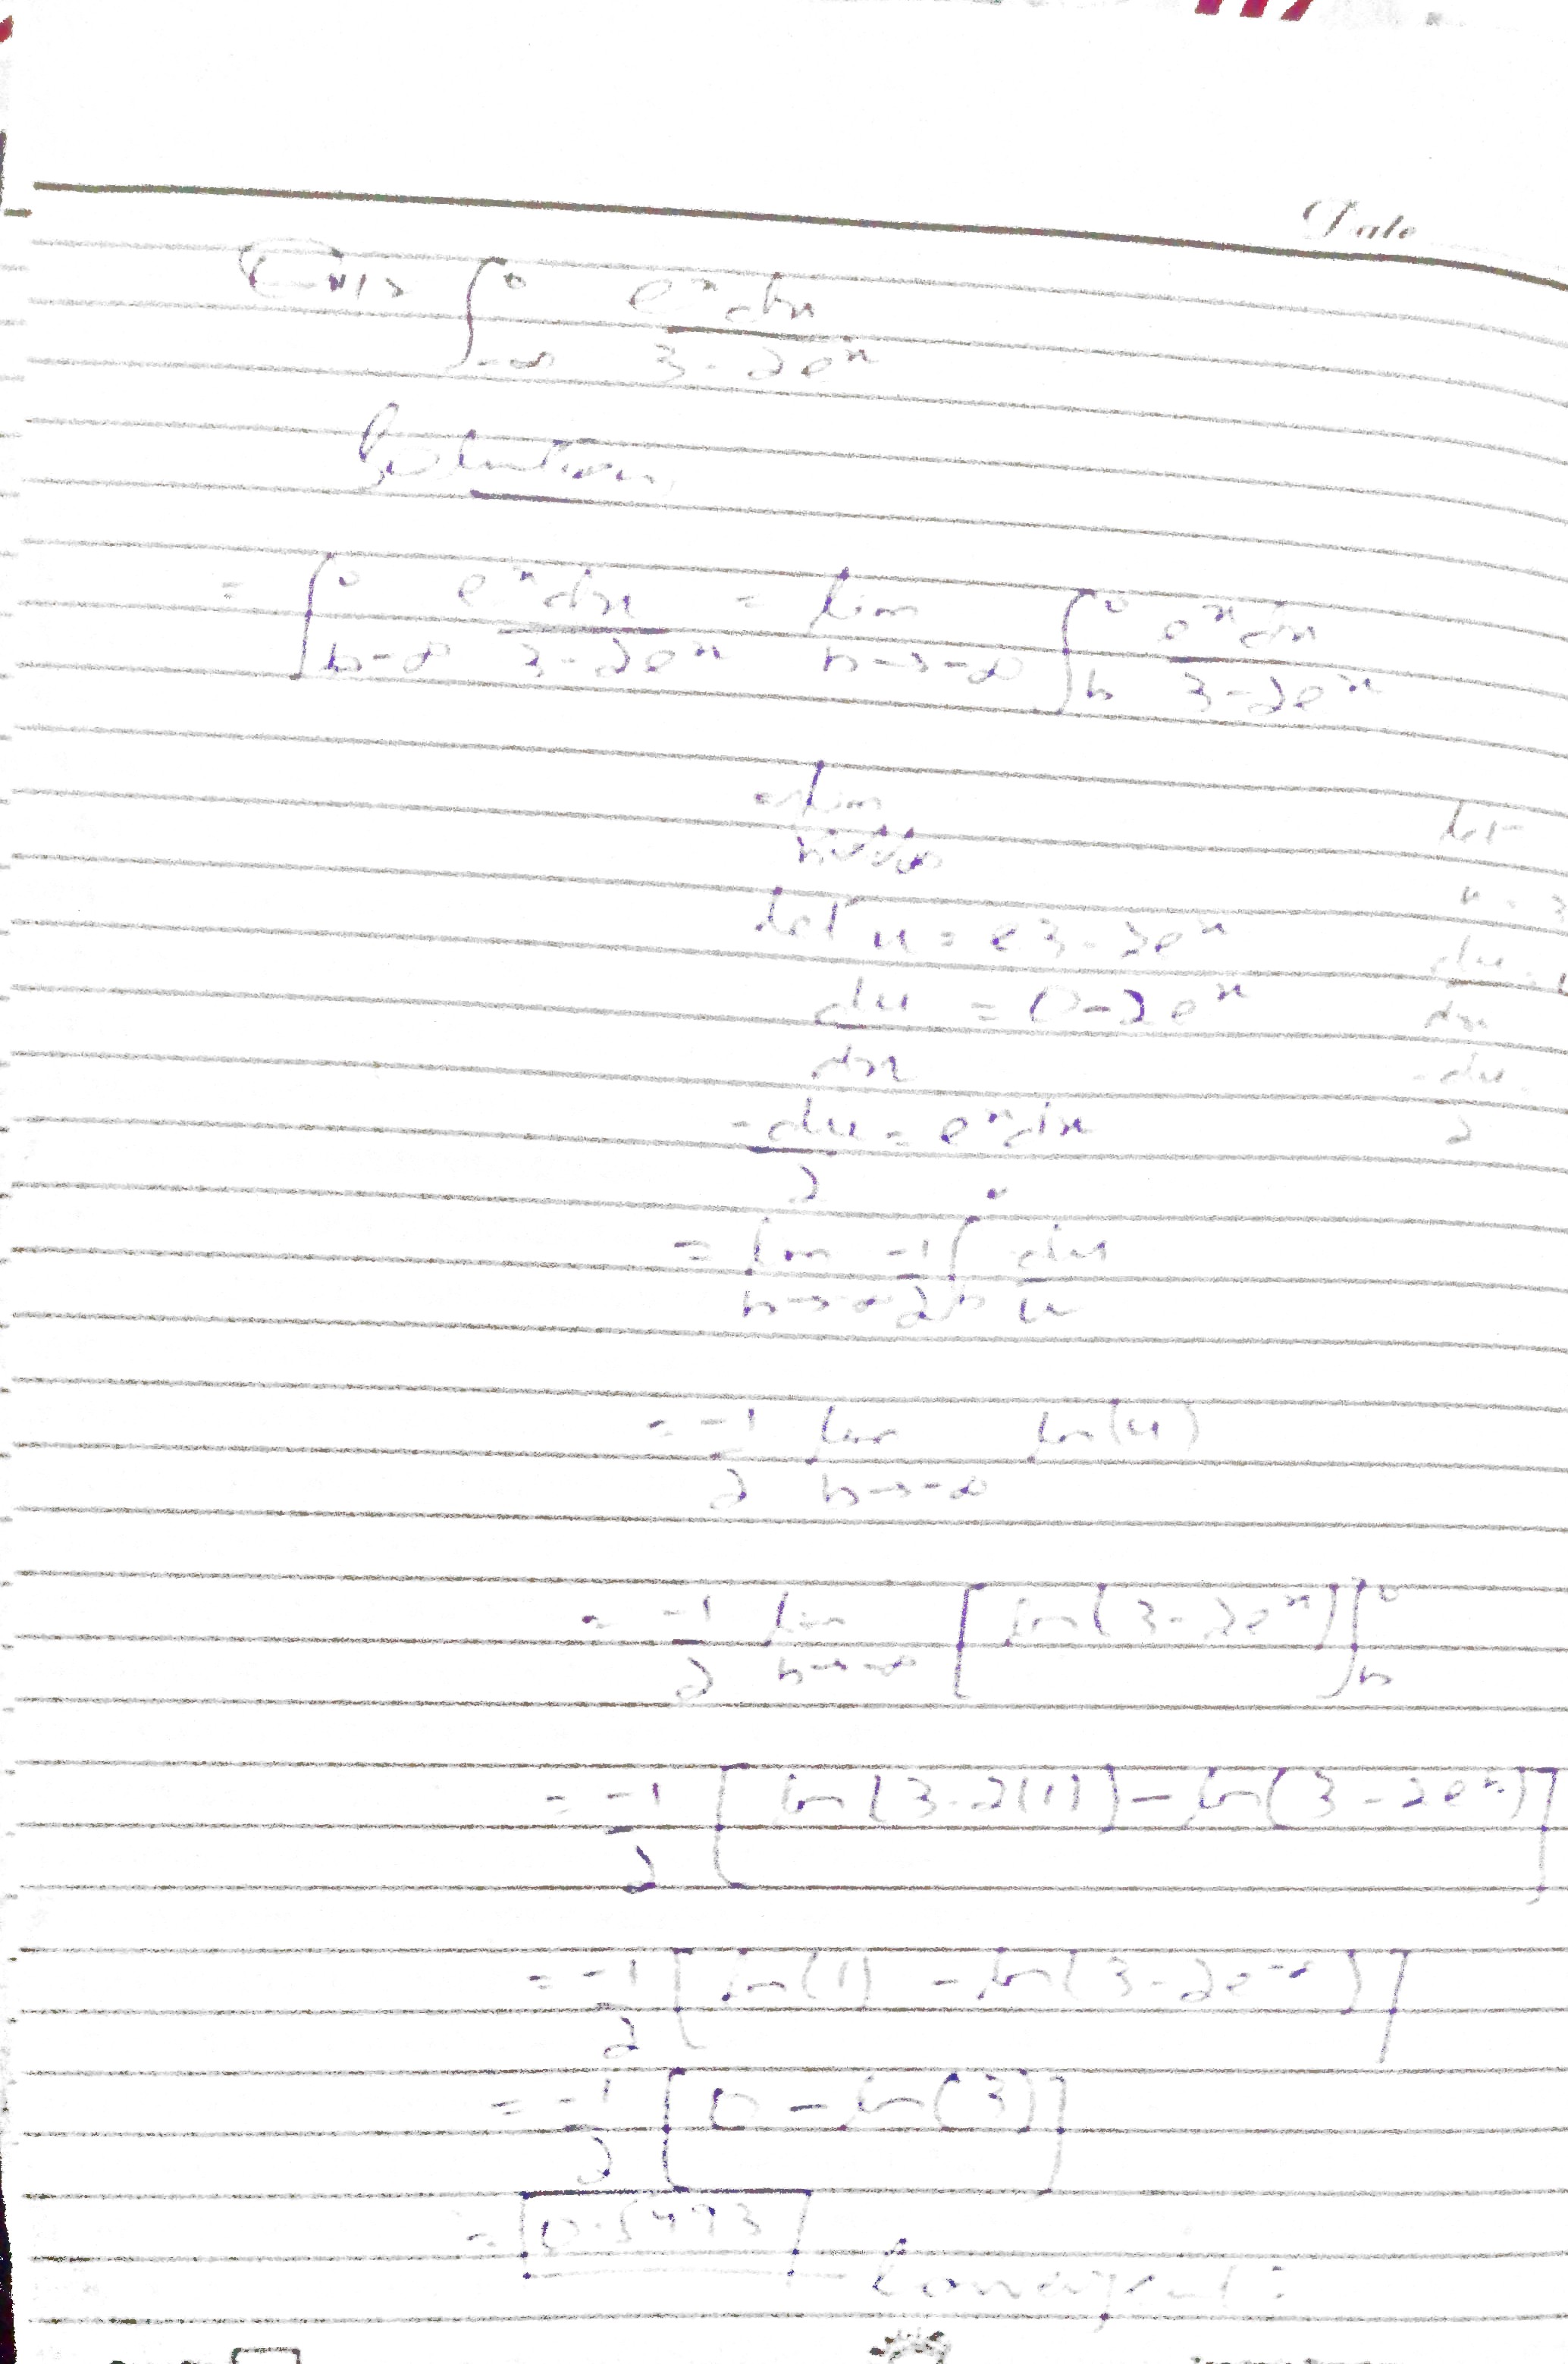 Date
∫₋∞⁰ eˣdx / 3-2eˣ
Solution
= ∫b-∞⁰ eˣdx / 3-2eˣ = lim b→-∞ ∫b⁰ eˣdx / 3-2eˣ
= lim
let
let u = e3-2eˣ
u = 3
du/dx = 0-2eˣ
du
dx
-du/2 = eˣdx
-du
2
= lim b→-∞ -1/2 ∫b⁰ du/u
= -1/2 lim b→-∞ ln(u)
= -1/2 lim b→-∞ [ln(3-2eˣ)]b⁰
= -1/2 [ln(3-2(1)) - ln(3-2eˣ)]
= -1/2 [ln(1) - ln(3-2e⁻∞)]
= -1/2 [0 - ln(3)]
= 0.5493 Convergent